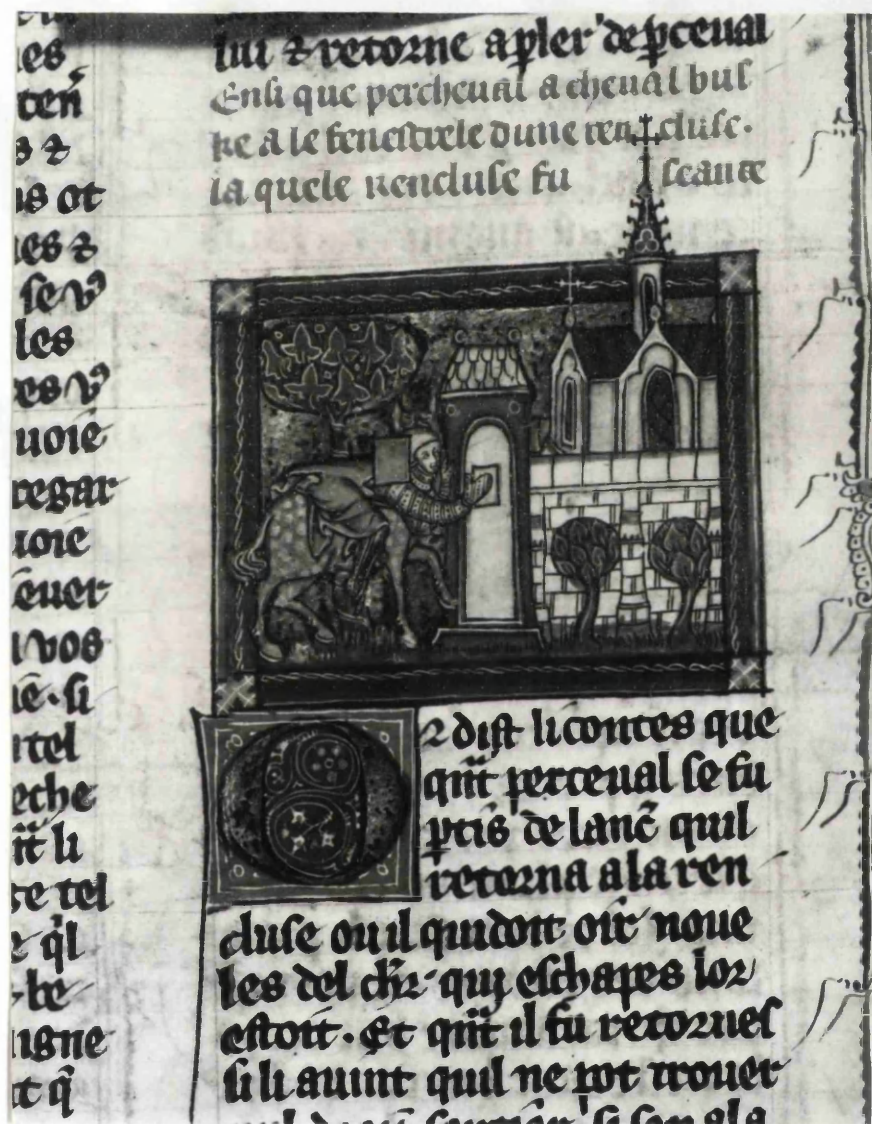 es
ten̄
s ⁊
s ot
es ⁊
se vͦ
les
es vͦ
uoie
regar
uoie
leuer
vos
si
tel
eche
it li
te tel
e q̍l
be
igne
t q̄
lui ⁊ retorne a ꝑler de ꝑceual
Ensi que percheual a cheual bus
ke a le fenestrele dune ren cluse.
la quele rencluse fu seante
Or dist li contes que
qn̄t perceual se fu
ꝑtis de lanc̄ quil
retorna a la ren
cluse ou il quidoit oir noue
les del chr̄ qui eschapes lor
estoit. Et qn̄t il fu retornes
si li auint quil ne pot trouer